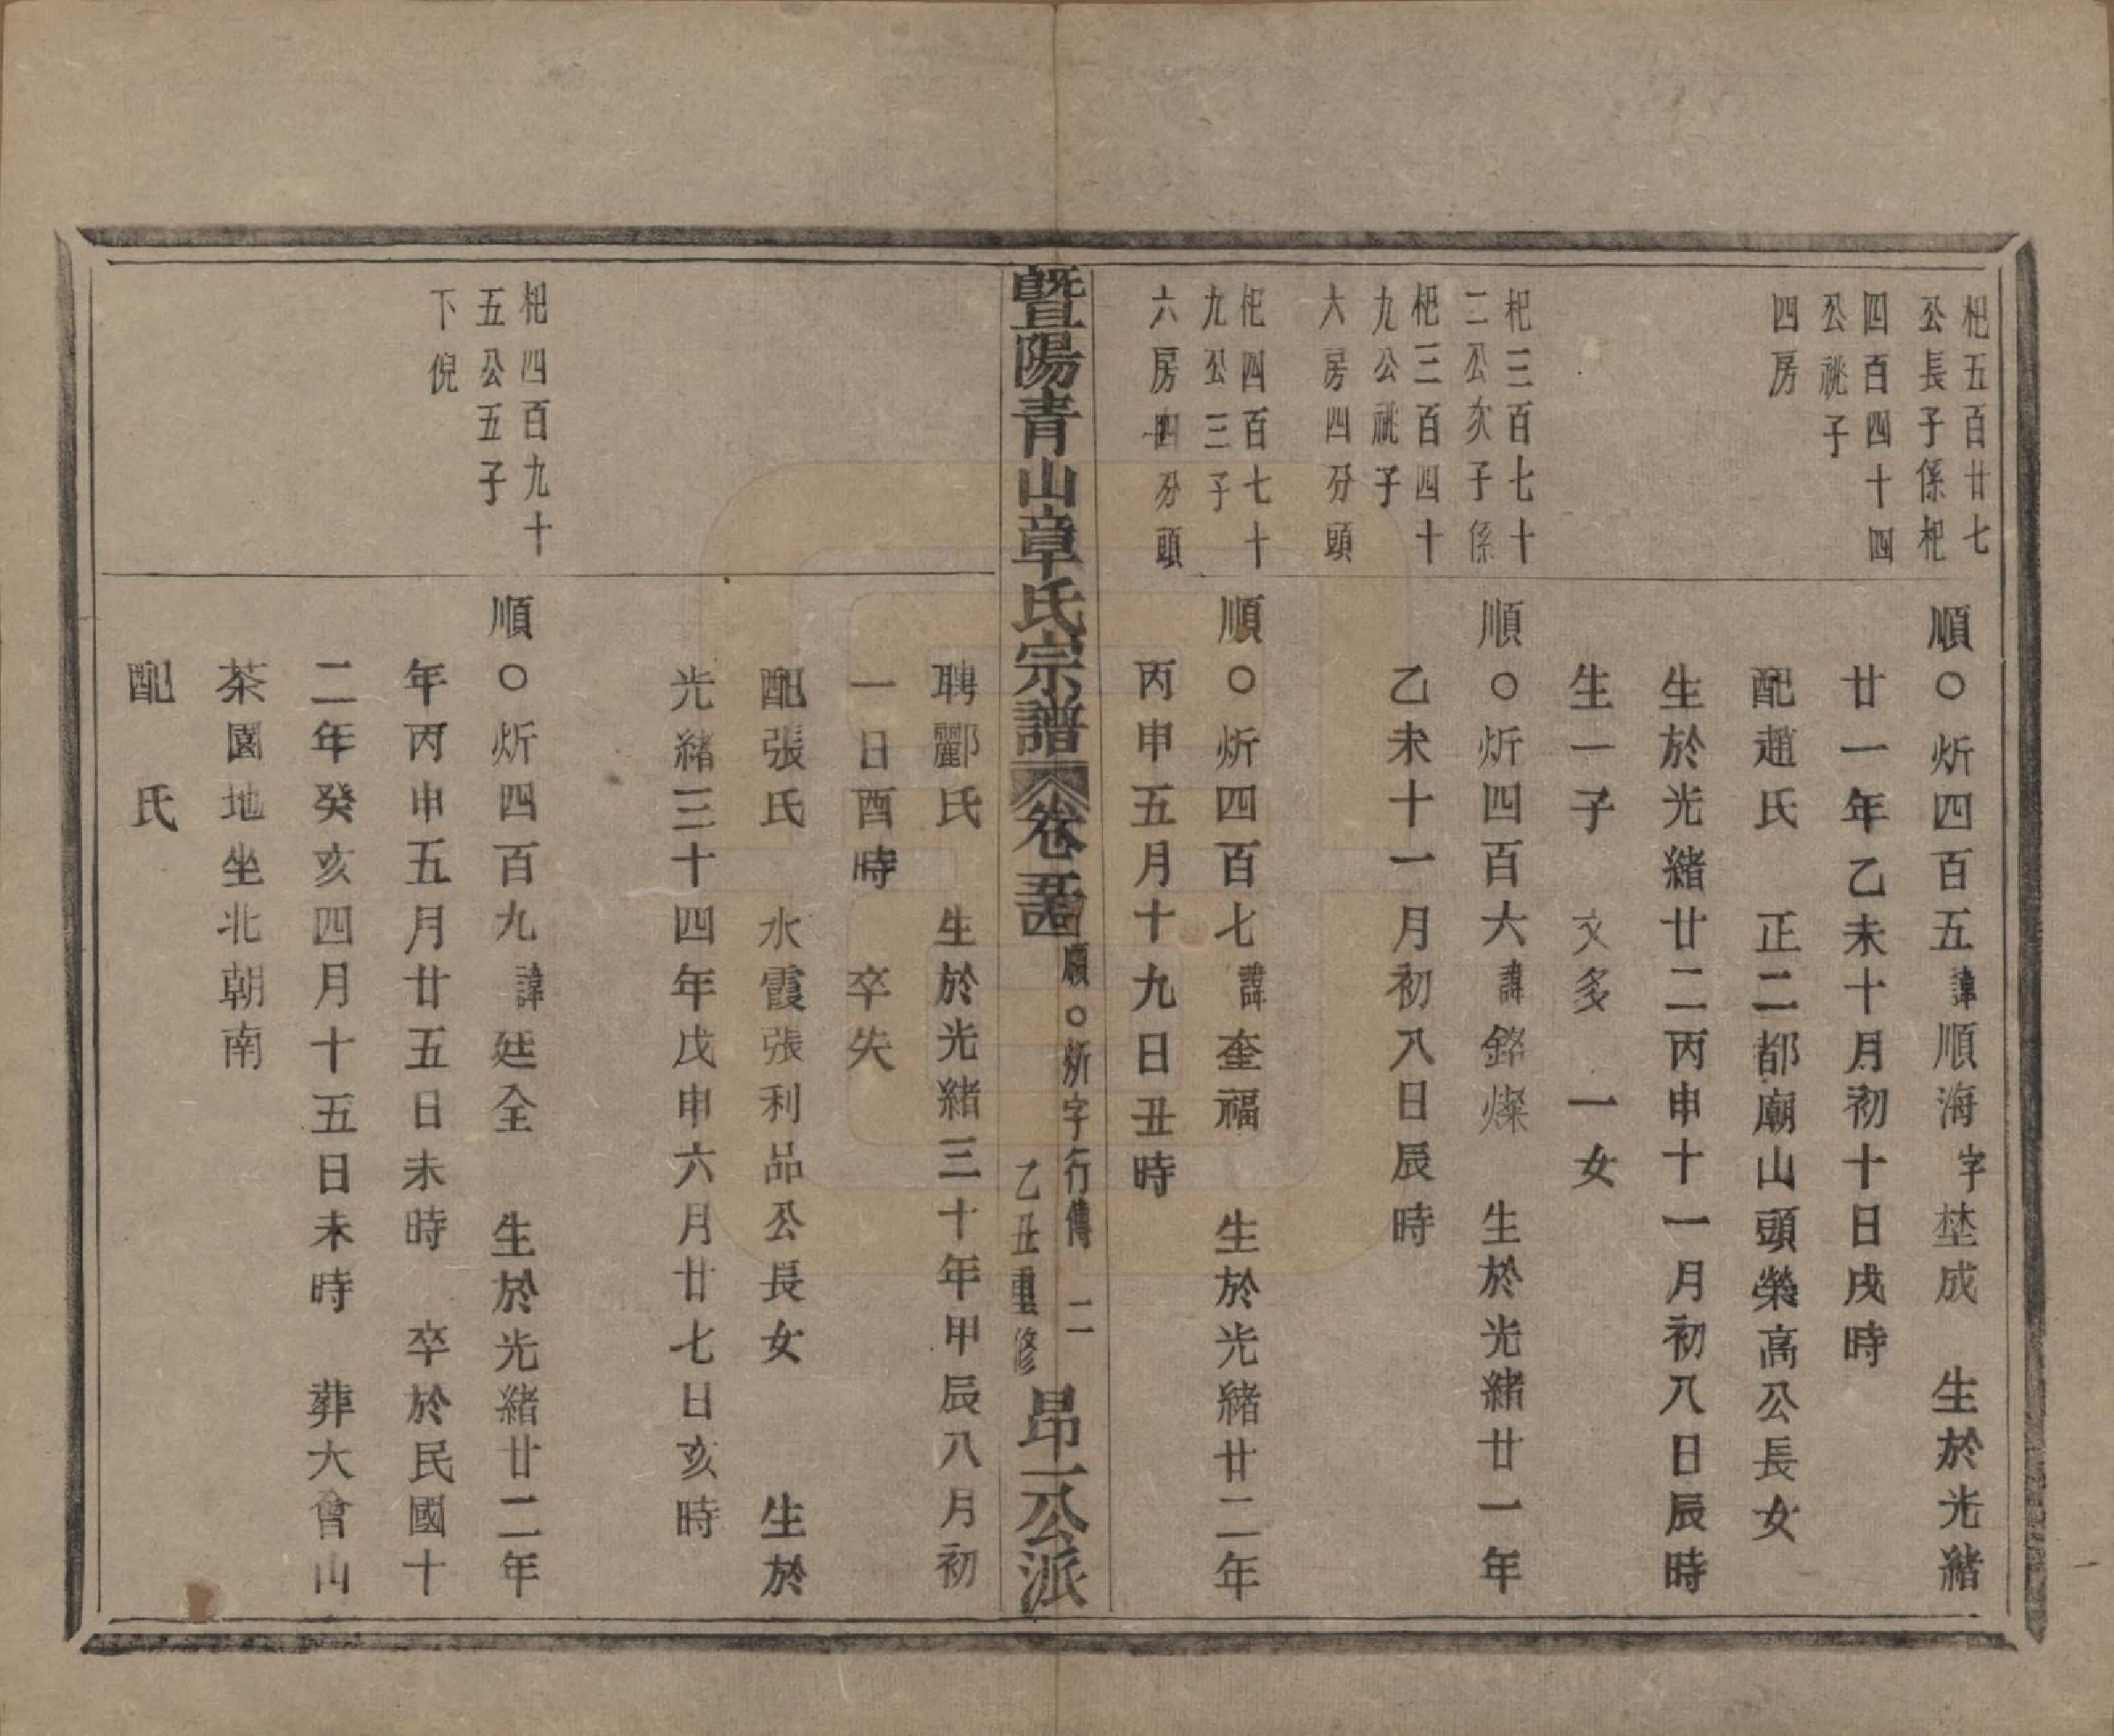 杞五百廿七
公長子係杞
四百四十四
公祧子
四房
順○炘四百五諱順海字埜成　生於光緒
廿一年乙未十月初十日戌時
配趙氏　正二都廟山頭榮高公長女
生於光緒廿二丙申十一月初八日辰時
生一子　文多　一女
杞三百七十
二公次子係
杞三百四十
九公祧子
大房四分頭
順○炘四百六諱銘燦　生於光緒廿一年
乙未十一月初八日辰時
杞四百七十
九公三子
六房四分頭
順○炘四百七諱奎福　生於光緒廿二年
丙申五月十九日丑時
暨陽青山章氏宗譜　卷　順○炘字行傳　二　乙丑重修　昂一公派
聘酈氏　生於光緒三十年甲辰八月初
一日酉時　卒失
配張氏　水霞張利品公長女　生於
光緒三十四年戊申六月廿七日亥時
杞四百九十
五公五子
下倪
順○炘四百九諱廷全　生於光緒廿二年
年丙申五月廿五日未時　卒於民國十
二年癸亥四月十五日未時　葬大會山
茶園地坐北朝南
配　氏